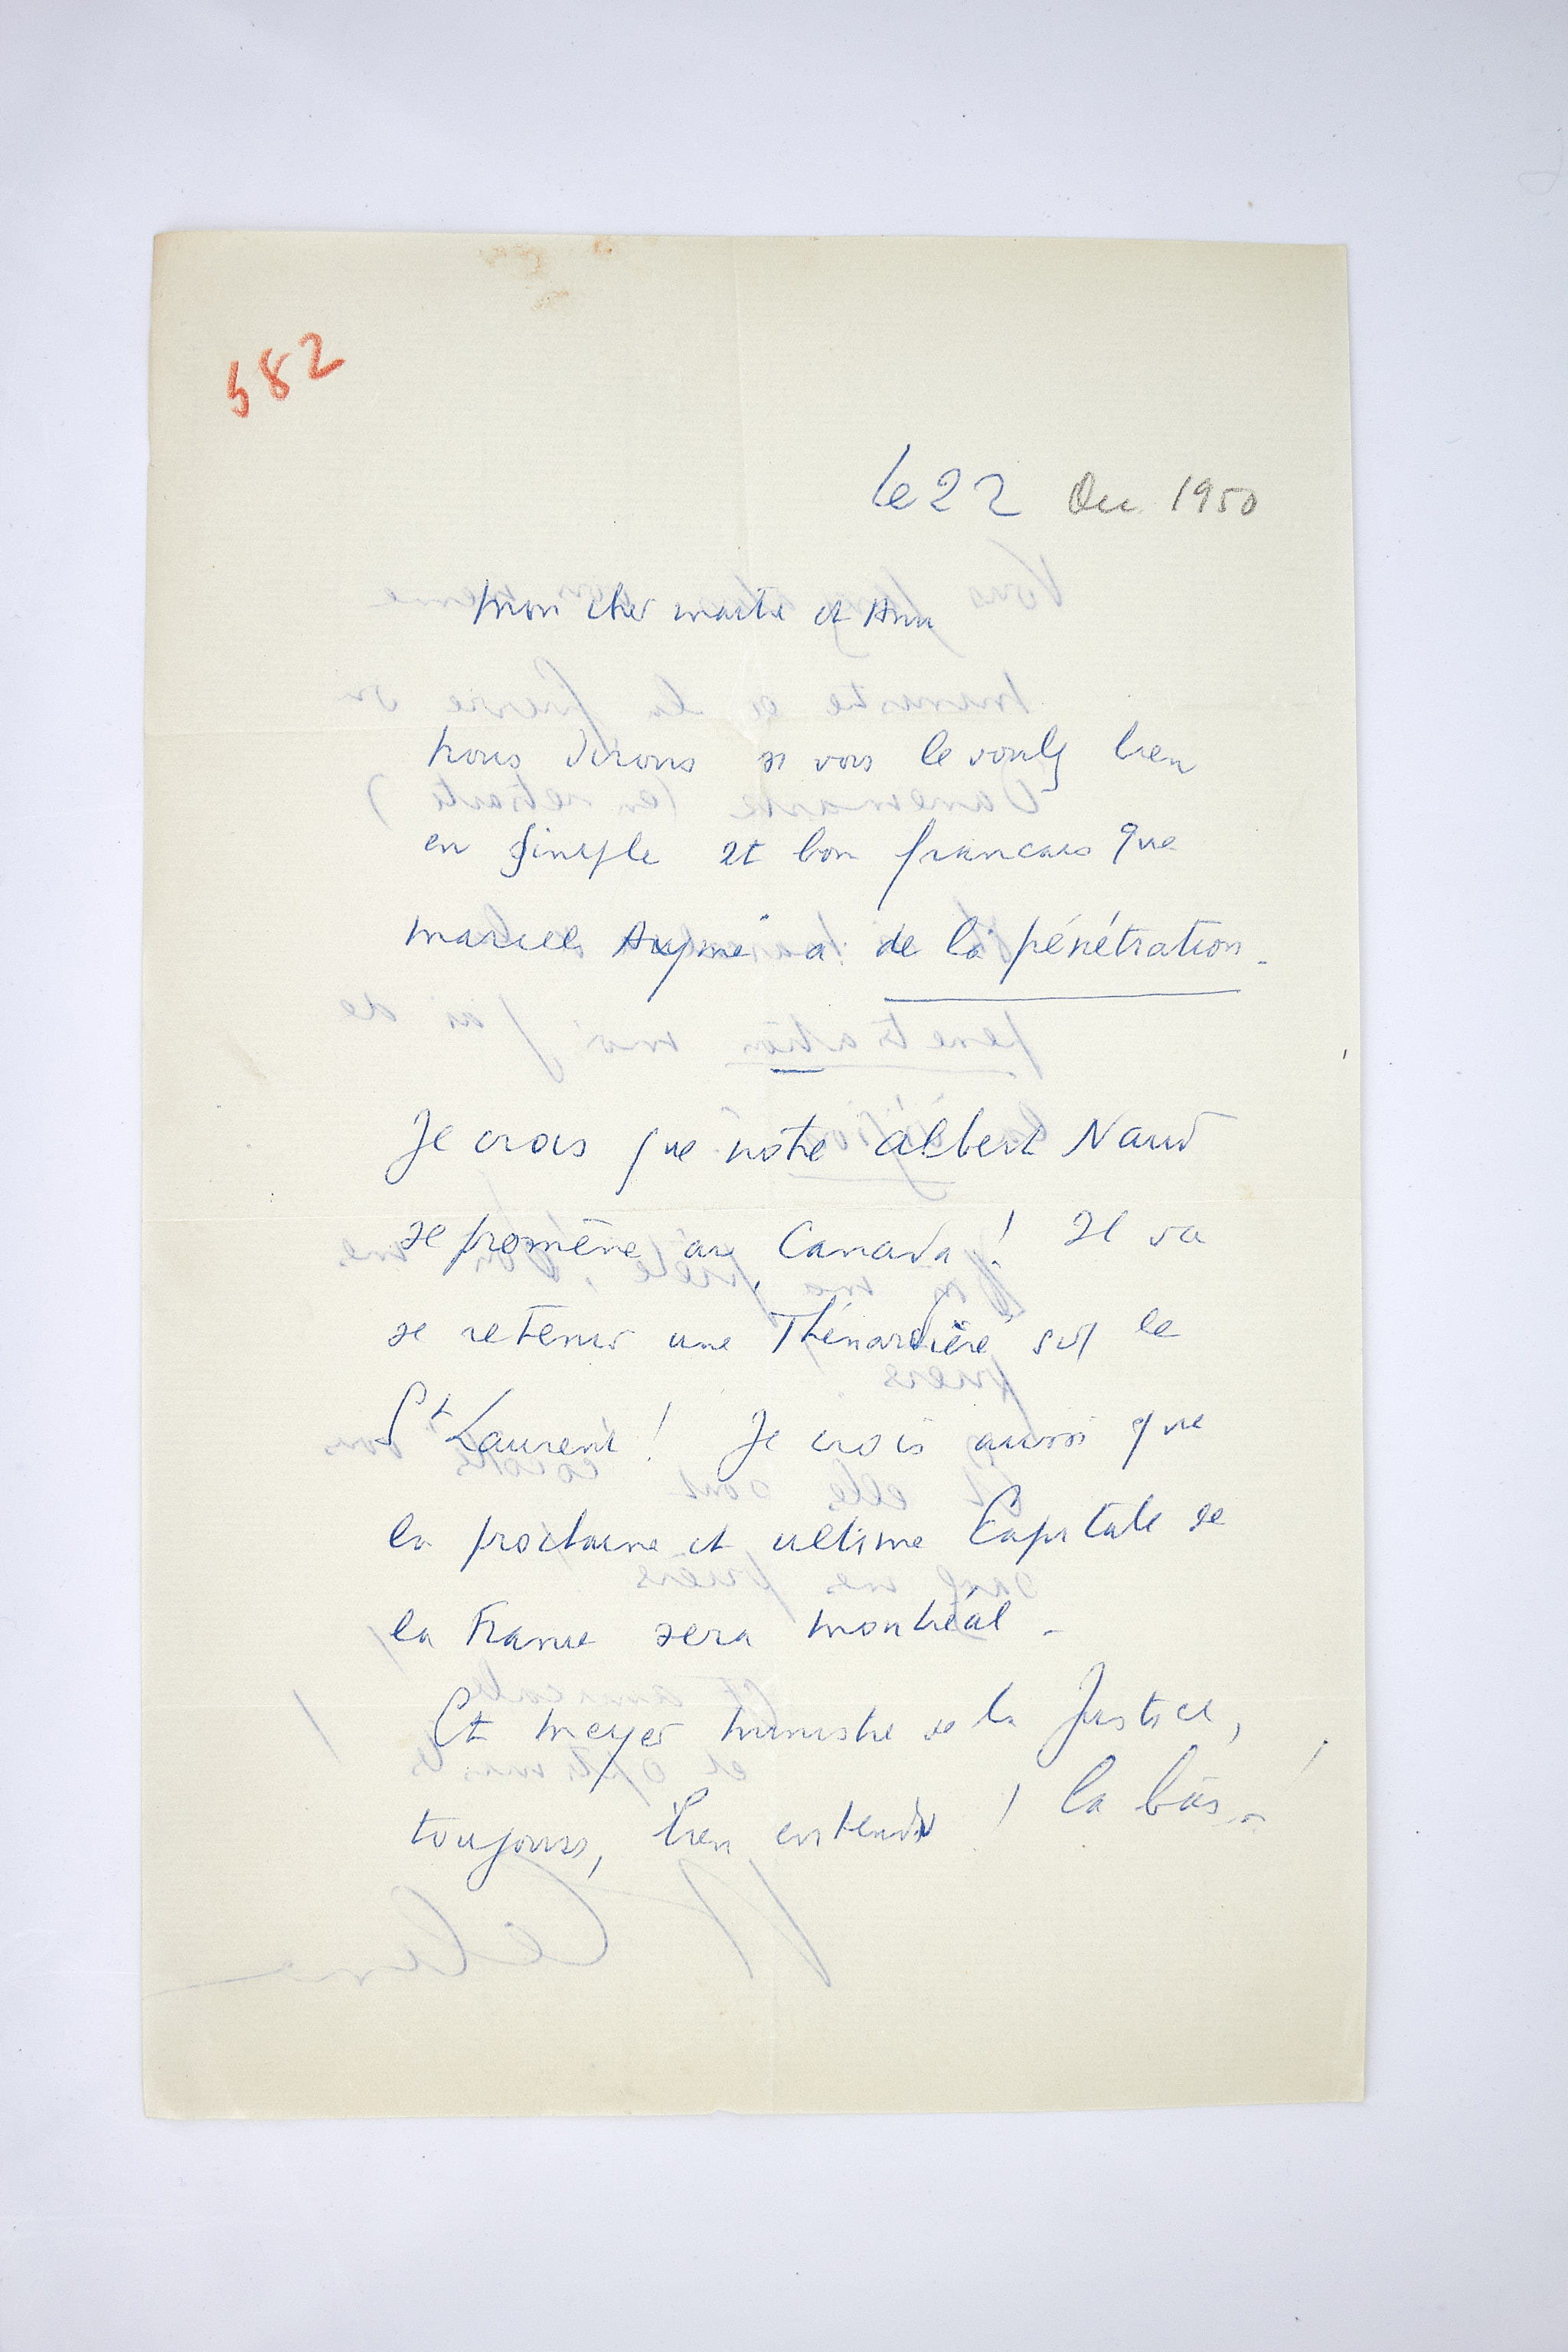 582
le 22 Dec 1950
Mon cher maitre et Ami
Nous dirons si vous le voulez bien
en simple et bon francais que
Marcel Aymé a de la pénétration.
Je crois que notre Albert Naud
se promène au Canada ! Il va
se retenir une Thénardière sur le
St Laurent ! Je crois aussi que
la prochaine et ultime Capitale de
la France sera Montréal -
Et Meyer Ministre de la Justice,
toujours, bien entendu ! la bas